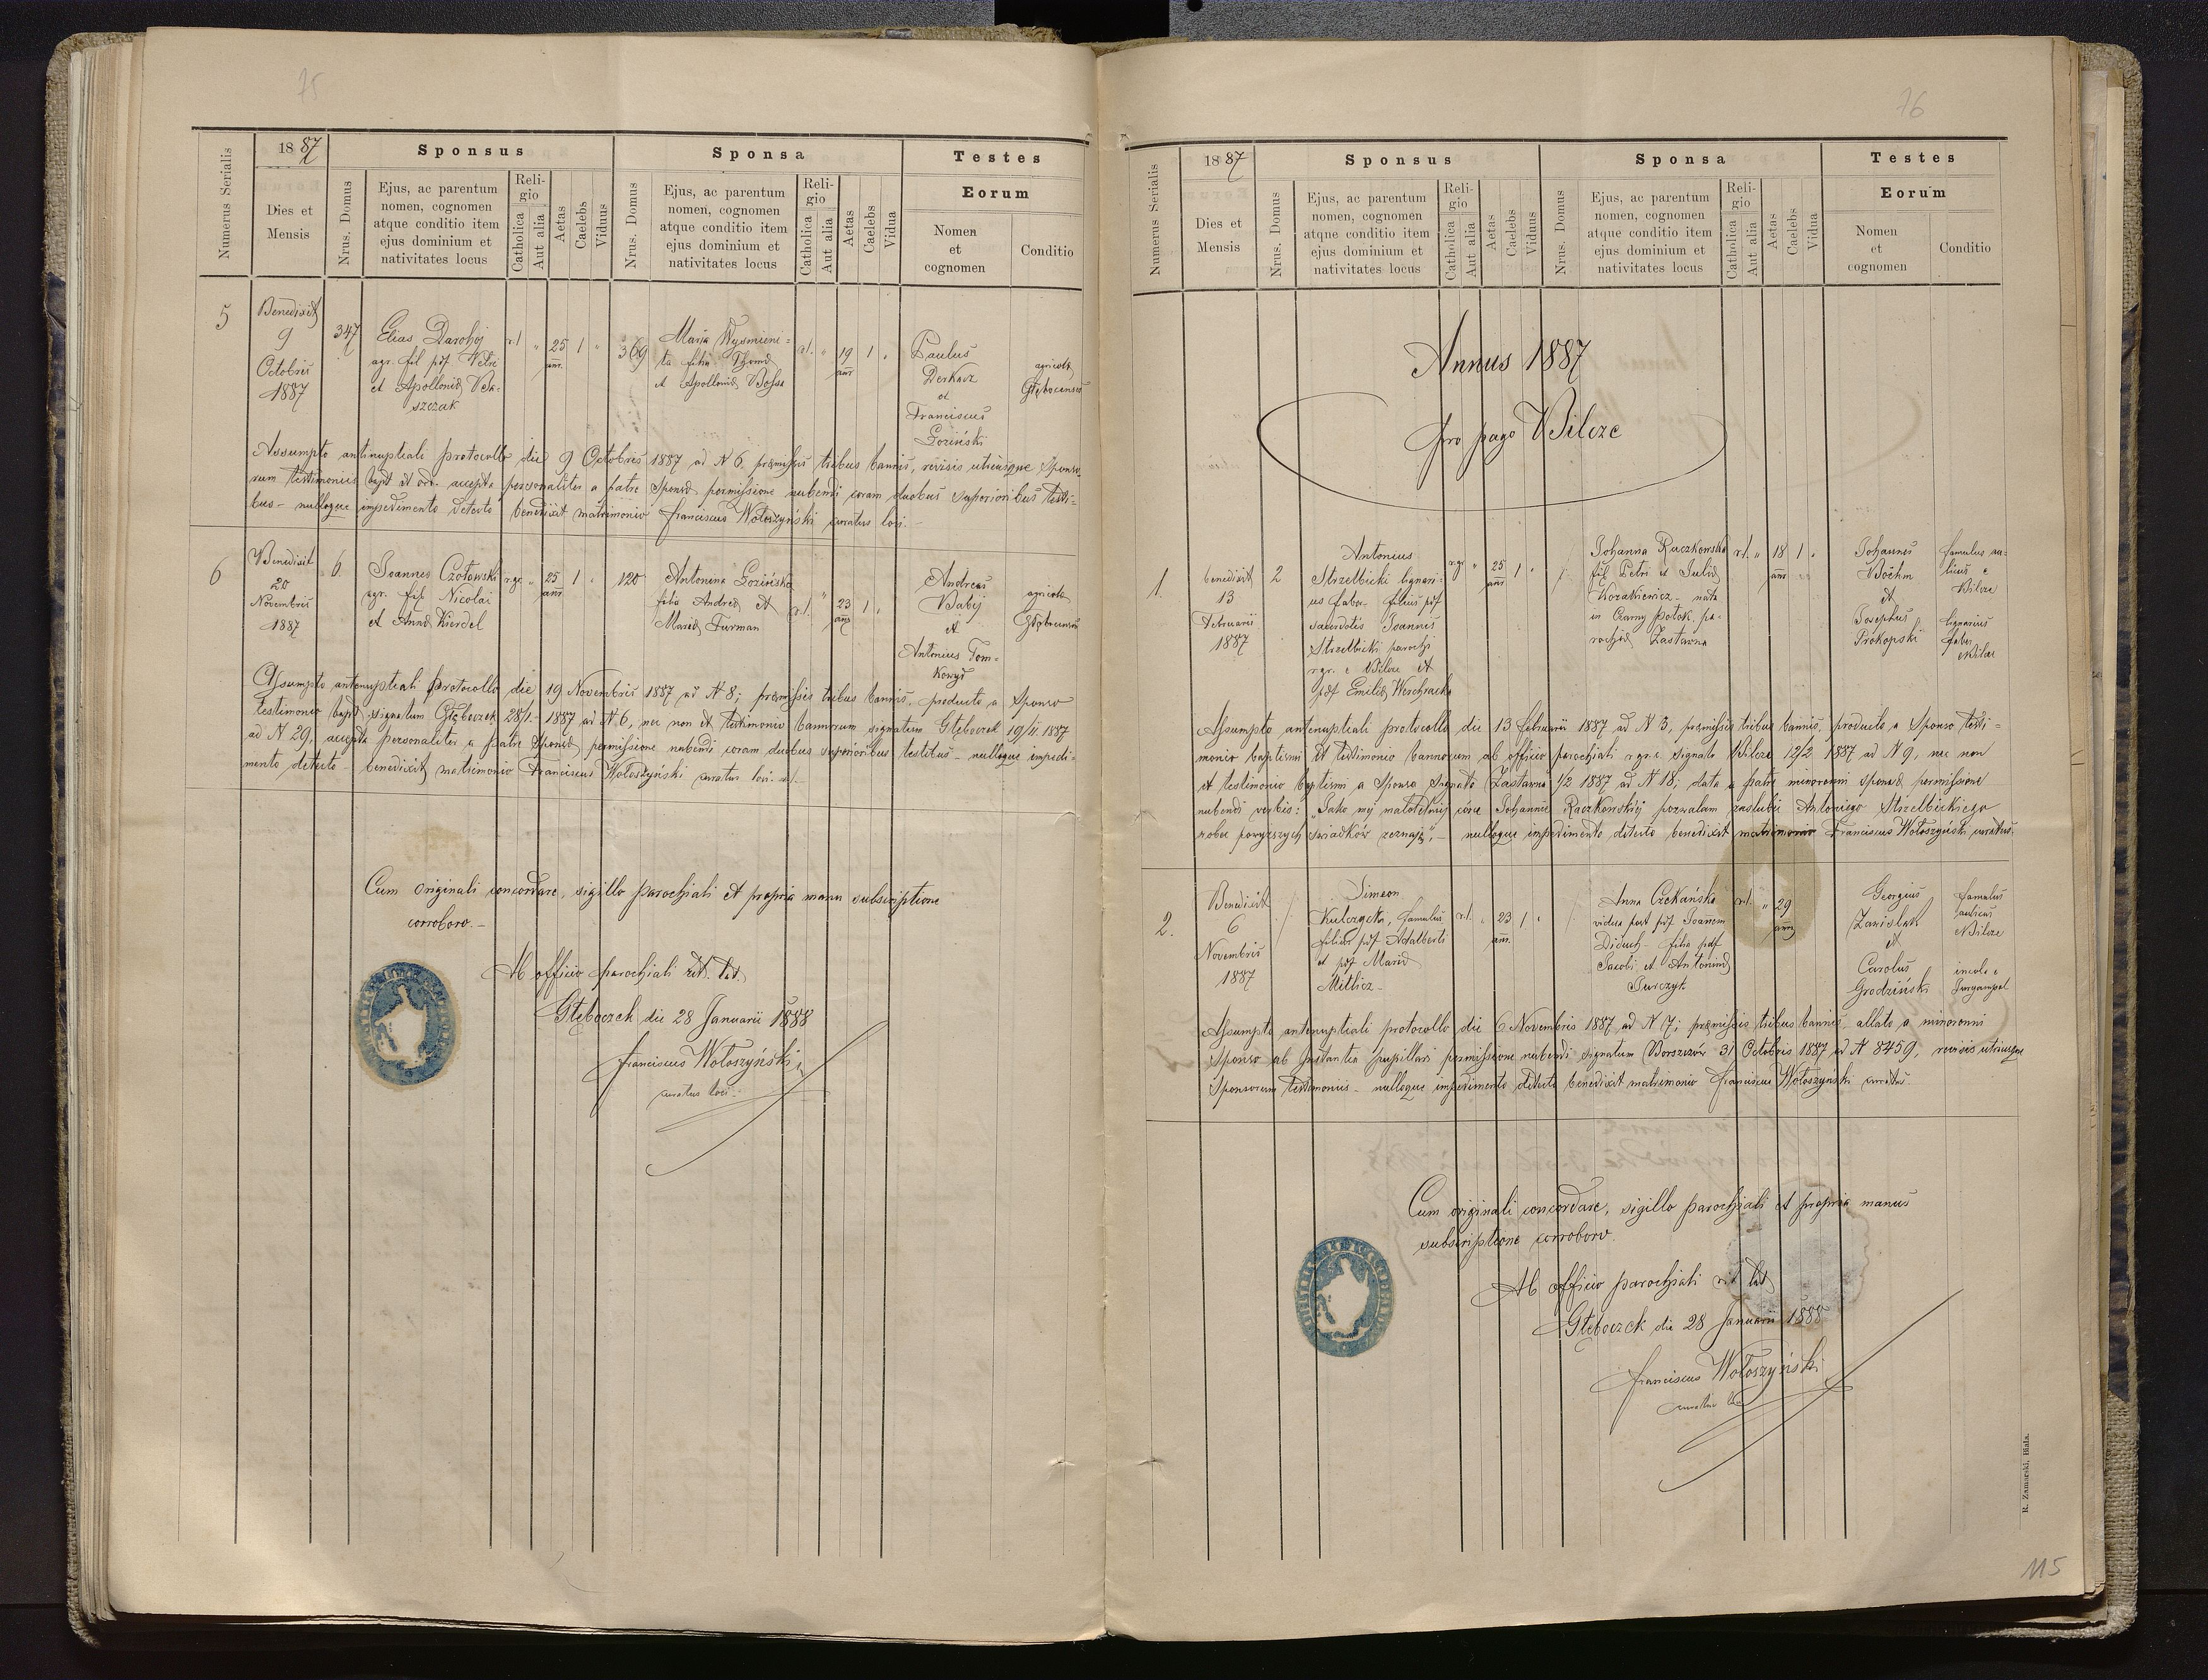 75
Numerus Serialis
1887
Dies et
Mensis
Sponsus
Nrus. Domus
Ejus, ac parentum
nomen, cognomen
atque conditio item
ejus dominium et
nativitates locus
Reli-
gio
Catholica
Aut alia
Aetas
Caelebs
Viduus
Sponsa
Nrus. Domus
Ejus, ac parentum
nomen, cognomen
atque conditio item
ejus dominium et
nativitates locus
Reli-
gio
Catholica
Aut alia
Aetas
Caelebs
Vidua
Testes
Eorum
Nomen
et
cognomen
Conditio
5
Benedixit
9
Octobris
1887
347
Elias Darohij
agr. fil pdf Petri
et Apollonia
szczak
r.l
"
25
ann.
1
"
369
Maria Wysmienie-
ta filia Thoma
et Apollonia Bossa
r.l.
"
19
ann
1
"
Paulus
Derkacz
et
Franciscus
Łoziński
agricola
Głębocenses
Assumpto antenuptiali protocollo die 9 Octobris 1887 ad N 6. præmissis tribus bannis, revisis utriusque Sponso-
rum testimoniis bapt et ord. accepta personaliter a patre Sponsa permissione nubendi coram duobus superioribus testi-
bus - nulloque impedimento detecto benedixit matrimonio Franciscus Wołoszyński curatus loci.
6
Benedixit
20
Novembris
1887
6.
Joannes Czołowski
agr. fil Nicolai
et Anna Kierdel
r.gr.
"
25
ann
1
"
120
Antonina Łozińska
filia Andrea et
Maria Furman
r.l.
"
23
ann
1
"
Andreas
Babij
et
Antonius Tom-
Kowyd
agricola
Głębocenses
Assumpto antenuptiali protocollo die 19 Novembris 1887 ad N 8; præmissis tribus bannis, producto a Sponso
testimonio bapt signatum Głęboczek 28/1.- 1887 ad N 6, nec non et testimonio bannorum signatum Głęboczek 19/11 1887
ad N 29, accepta personaliter a patre Sponsa permissione nubendi coram duobus superioribus testibus - nulloque impedi-
mento detecto - benedixit matrimonio Franciscus Wołoszyński curatus loci
Cum originali concordare, sigillo parochiali et propria manu subscriptione
corroboro.-
Ab officio parochiali rit. lat.
Głęboczek die 28 Januarii 1888
Franciscus Wołoszyński
curatus loci
76
Numerus Serialis
1887
Dies et
Mensis
Sponsus
Nrus. Domus
Ejus, ac parentum
nomen, cognomen
atque conditio item
ejus dominium et
nativitates locus
Reli-
gio
Catholica
Aut alia
Aetas
Caelebs
Viduus
Sponsa
Nrus. Domus
Ejus, ac parentum
nomen, cognomen
atque conditio item
ejus dominium et
nativitates locus
Reli-
gio
Catholica
Aut alia
Aetas
Caelebs
Vidua
Testes
Eorum
Nomen
et
cognomen
Conditio
Annus 1887
pro pago Bilcze
1.
benedixit
13
Februarii
1887
2
Antonius
Strzelbicki lignari-
us faber filius pdf
sacerdotis Joannis
Strzelbicki parochi
r.gr. e Bilcze et
pdf Emilia Werchracka
r.gr
"
25
ann
1
"
Johanna Raczkowska
fil Petri et Julia
Kozakiewicz - nata
in Czarny potok, pa-
rochia Zastawna
r.l.
"
18
ann
1
"
Johannes
Boehm
et
Josephus
Prokopski
famulus au-
licus e
Bilcze
lignarius
faber
Bilcze
Assumpto antenuptiali protocollo die 13 Februarii 1887 ad N 3, præmissis tribus bannis, producto a Sponso testi-
monio baptismi et testimonio bannorum ab officio parochiali r.gr.c. signato Bilcze 12/2 1887 ad N 9, nec non
et testimonio baptismi a Sponsa signato Zastawna 1/2 1887 ad N 18; data a patre minorenni sponsa permissione
nubendi verbis: "Jako mej małoletniej córce Johannie Raczkowskiej pozwalam zaślubić Antoniego Strzelbickiego
wobec powyższych świadków zeznaję", - nulloque impedimento detecto benedixit matrimonio Franciscus Wołoszyński curatus.
2.
Benedixit
6
Novembris
1887
Simeon
Kulczycki, famulus
filius pdf Adalberti
et pdf Maria
Mitlicz-
r.l.
"
23
ann.
1
"
Anna Czekańska
vidua post pdf Joannem
Diduch - filia pdf
Jacobi et Antonina
Jurczyk
r.l.
"
29
ann
Georgius
Zawislak
et
Carolus
Grodziński
famulus
aulicus
Bilcze
incola e
Assumpto antenuptiali protocollo die 6 Novembris 1887 ad N 7; præmissis tribus bannis, allato a minorenni
Sponso ab Instantia pupillari permissione nubendi signatum Borszczów 31 Octobris 1887 ad N 8459, revisis utriusque
Sponsorum testimoniis - nulloque impedimento detecto benedixit matrimonio Franciscus Wołoszyński curatus.
Cum originali concordare, sigillo parochiali et propria manus
subscriptione corroboro.
Ab officio parochiali rit lat
Głęboczek die 28 Januarii 1888
Franciscus Wołoszyński
curatus loci
R. Zamarski, Biała.
115